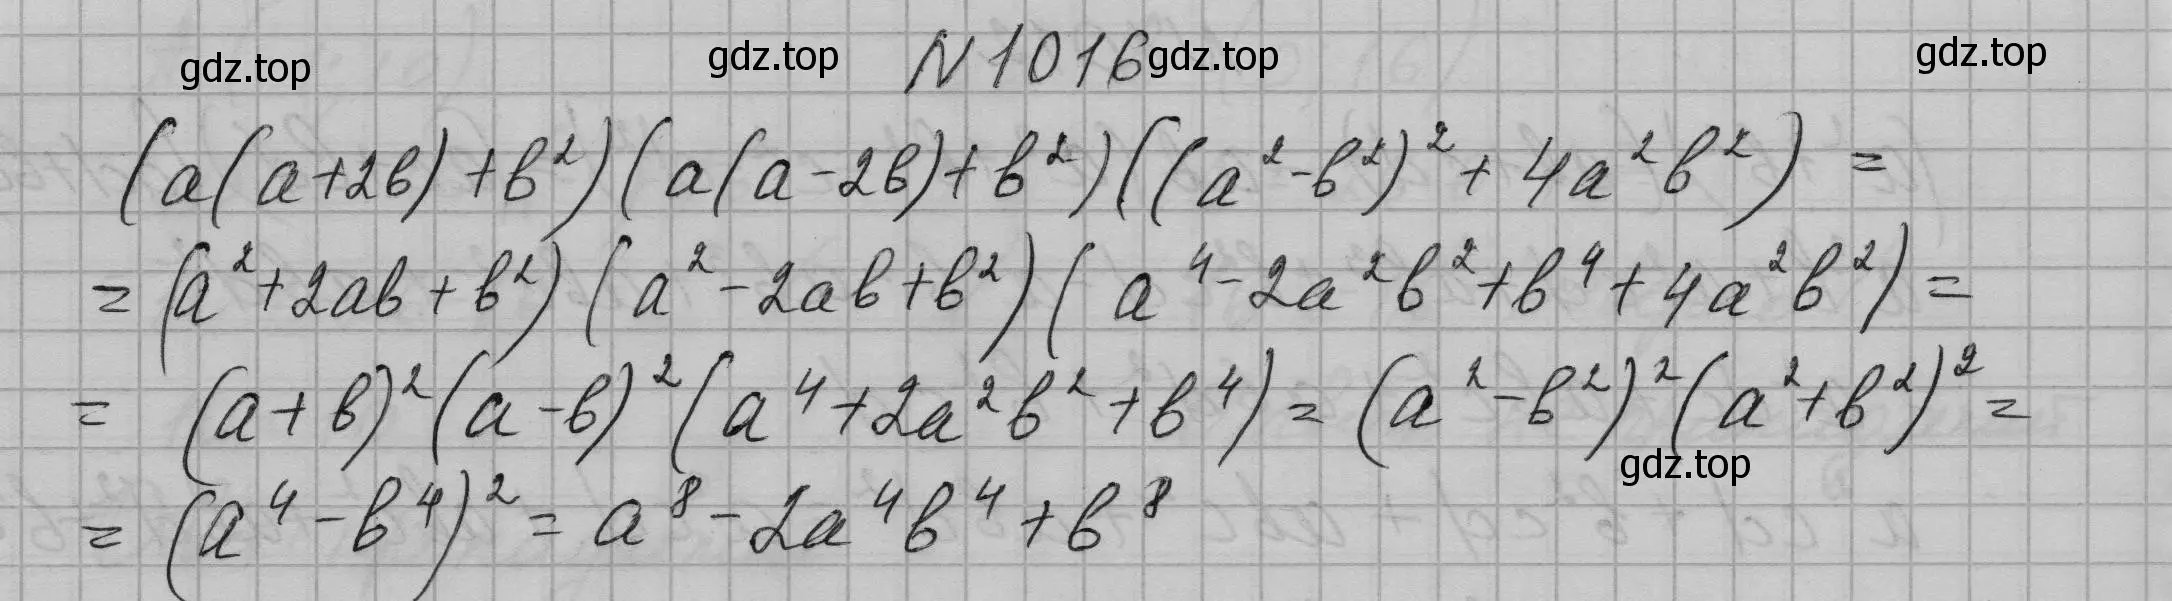 gdz.top gdz.top N1016 gdz.top gdz.top
(a(a+2b)+b²)(a(a-2b)+b²)((a²-b²)²+4a²b²) =
= (a²+2ab+b²)(a²-2ab+b²)(a⁴-2a²b²+b⁴+4a²b²) =
= (a+b)²(a-b)²(a⁴+2a²b²+b⁴) = (a²-b²)²(a²+b²)² =
gdz.top
= (a⁴-b⁴)² = a⁸-2a⁴b⁴+b⁸